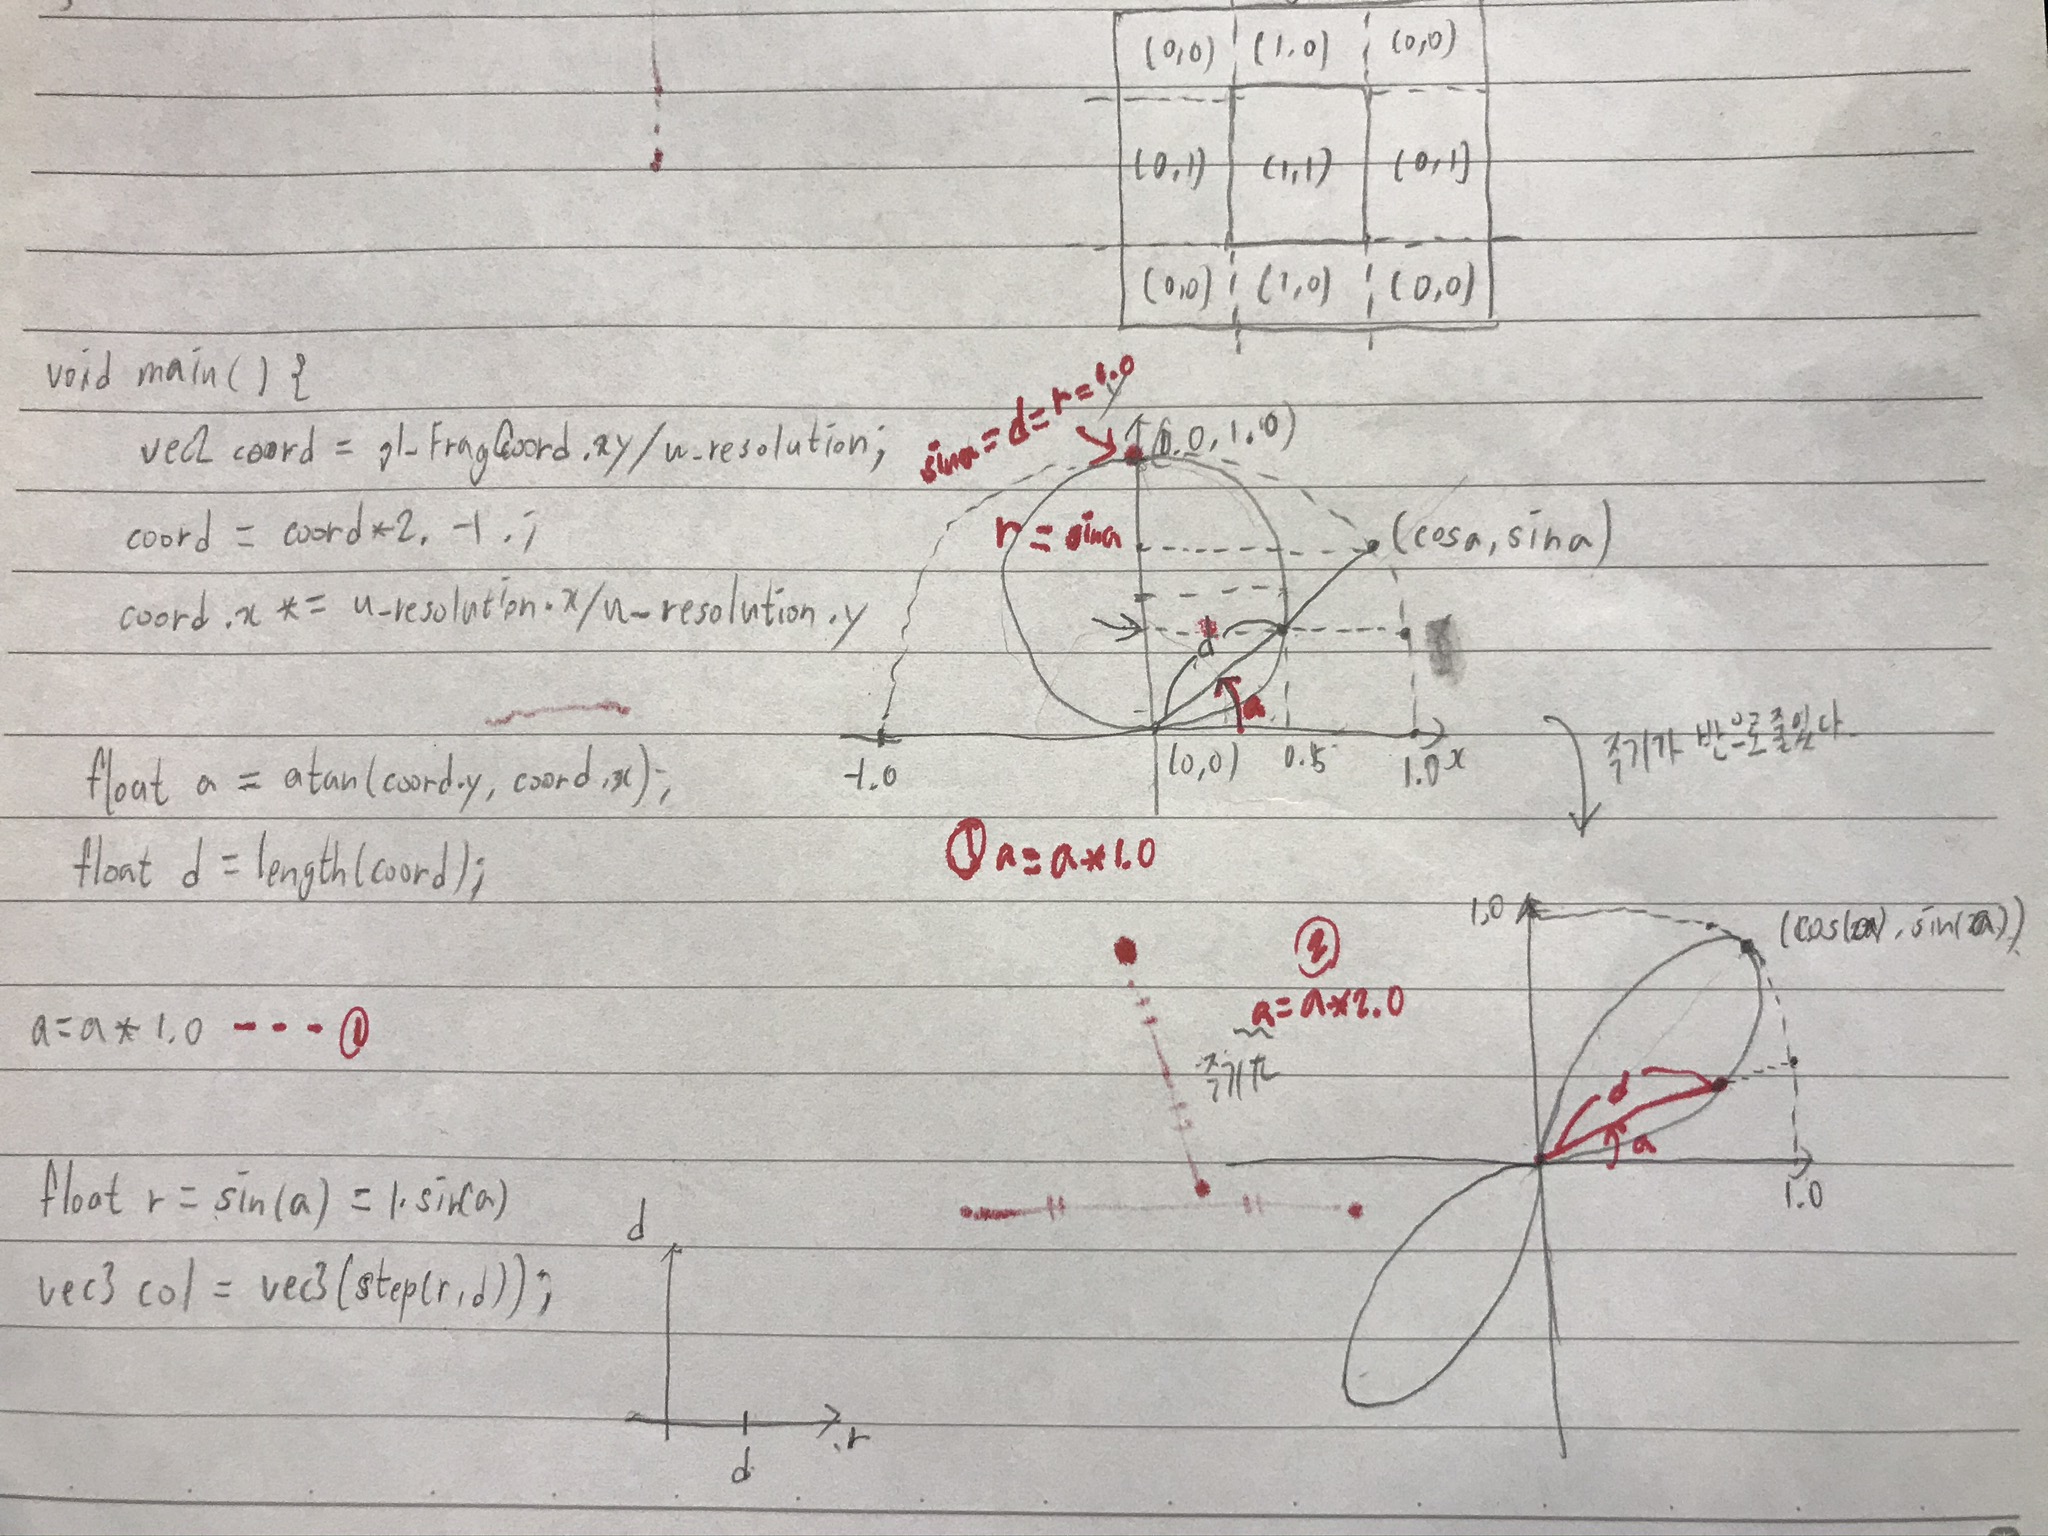 (0,0) (1,0) (0,0)
(0,1) (1,1) (0,1)
(0,0) (1,0) (0,0)
void main() {
vec2 coord = gl_FragCoord.xy/u_resolution;
coord = coord*2. -1.;
coord.x *= u_resolution.x/u_resolution.y
float a = atan(coord.y, coord.x);
float d = length(coord);
a=a*1.0 --- ①
float r = sin(a) = 1·sin(a)
vec3 col = vec3(step(r,d));
d
r
d
sina=d=r=1.0
y
(0.0,1.0)
r=sina
(cosa, sina)
d
a
-1.0 (0,0) 0.5 1.0 x
① a=a*1.0
주기가 반으로 줄었다.
②
a=a*2.0
1.0
(cos(2a), sin(2a))
d
a
1.0